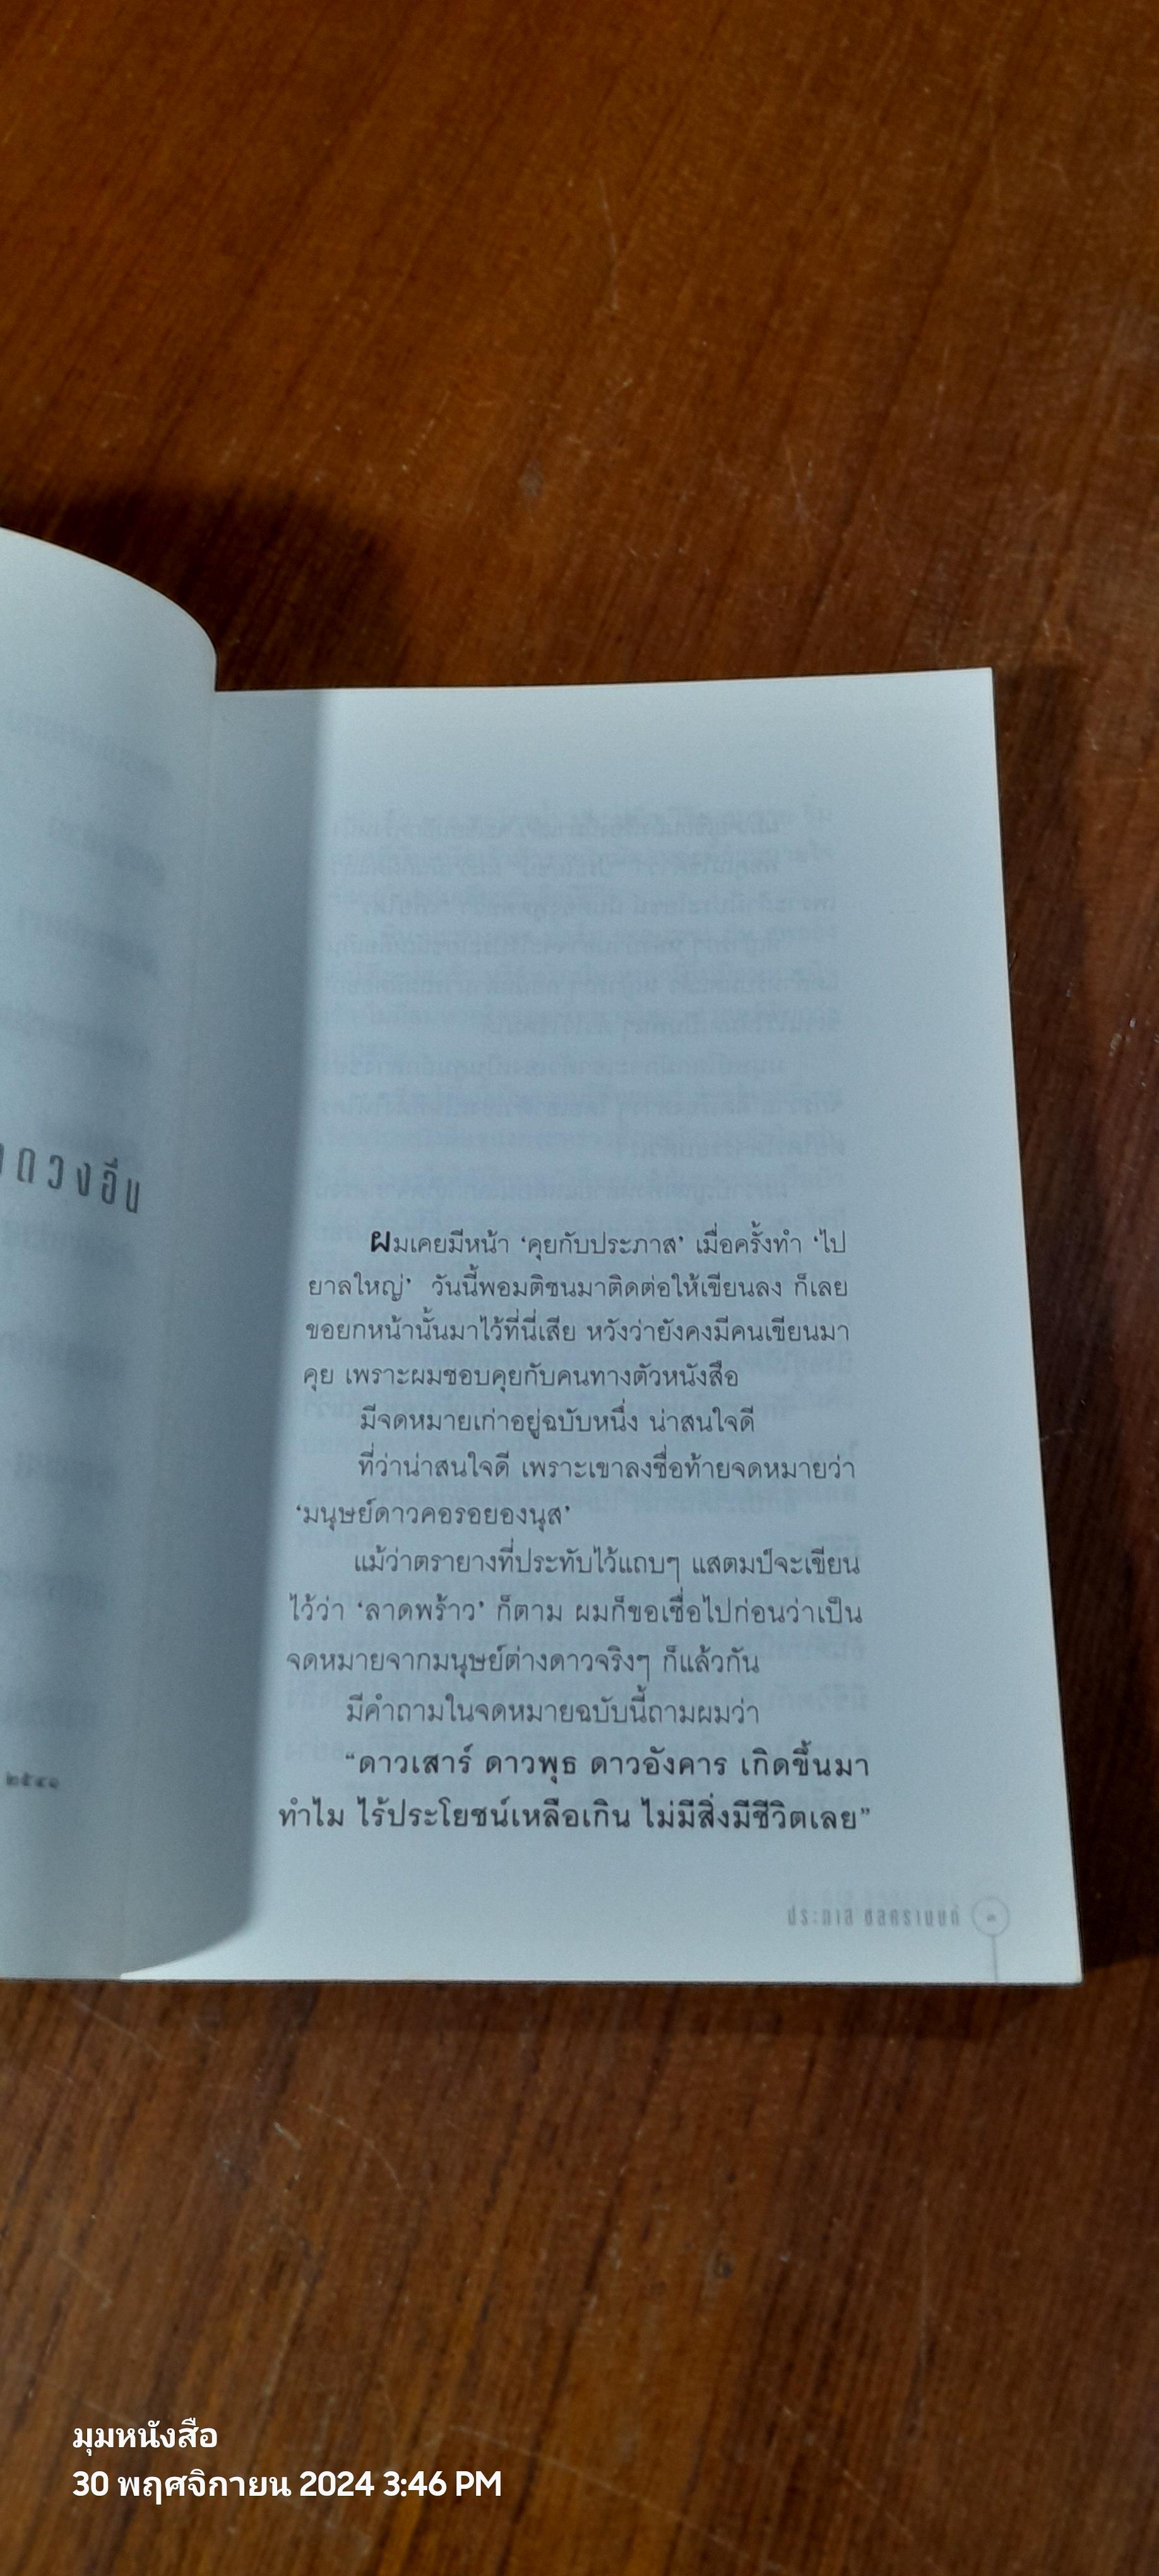 ดวงอื่น
๒๕๔๑
ผมเคยมีหน้า ‘คุยกับประภาส’ เมื่อครั้งทำ ‘ไป
ยาลใหญ่’ วันนี้พอมติชนมาติดต่อให้เขียนลง ก็เลย
ขอยกหน้านั้นมาไว้ที่นี่เสีย หวังว่ายังคงมีคนเขียนมา
คุย เพราะผมชอบคุยกับคนทางตัวหนังสือ
มีจดหมายเก่าอยู่ฉบับหนึ่ง น่าสนใจดี
ที่ว่าน่าสนใจดี เพราะเขาลงชื่อท้ายจดหมายว่า
‘มนุษย์ดาวคอรอยองนุส’
แม้ว่าตรายางที่ประทับไว้แถบๆ แสตมป์จะเขียน
ไว้ว่า ‘ลาดพร้าว’ ก็ตาม ผมก็ขอเชื่อไปก่อนว่าเป็น
จดหมายจากมนุษย์ต่างดาวจริงๆ ก็แล้วกัน
มีคำถามในจดหมายฉบับนี้ถามผมว่า
“ดาวเสาร์ ดาวพุธ ดาวอังคาร เกิดขึ้นมา
ทำไม ไร้ประโยชน์เหลือเกิน ไม่มีสิ่งมีชีวิตเลย”
ประภาส ชลศรานนท์
มุมหนังสือ
30 พฤศจิกายน 2024 3:46 PM